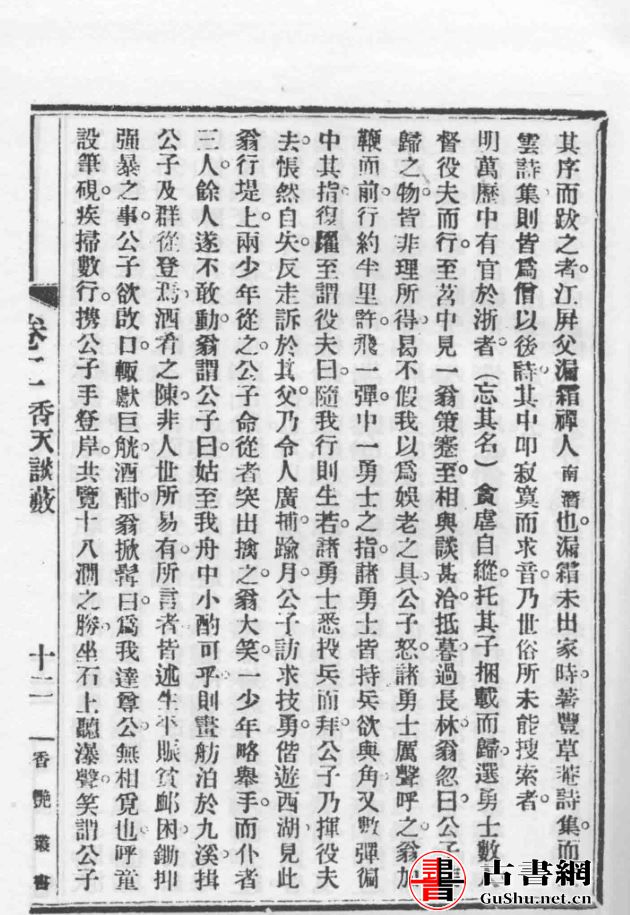 其序而跋之者江屏父漏霜禪人南潛也漏霜未出家時著豐草菴詩集而
雲詩集則皆爲僧以後詩其中叩寂寞而求音乃世俗所未能搜索者
明萬歷中有官於浙者（忘其名）貪虐自縱托其子捆載而歸選勇士數
督役夫而行至苕中見一翁策蹇至相與談甚洽抵暮過長林翁忽曰公子
歸之物皆非理所得曷不假我以爲娛老之具公子怒諸勇士厲聲呼之翁加
鞭而前行約半里許飛一彈中一勇士之指諸勇士皆持兵欲與角又數彈徧
中其指復躍至謂役夫曰隨我行則生若諸勇士悉投兵而拜公子乃揮役夫
去悵然自失反走訴於其父乃令人廣捕踰月公子訪求技勇偕遊西湖見此
翁行堤上兩少年從之公子命從者突出擒之翁大笑一少年略舉手而仆者
三人餘人遂不敢動翁謂公子曰姑至我舟中小酌可乎則畫舫泊於九溪揖
公子及群從登焉酒肴之陳非人世所易有所言者皆述生平賑貧卹困鋤抑
强暴之事公子欲啟口輒獻巨觥酒酣翁掀髯曰爲我達尊公無相覓也呼童
設筆硯疾掃數行攜公子手登岸共覽十八澗之勝坐石上聽瀑聲笑謂公子
香天談藪
十二
香艷叢書
古書網
GuShu.net.cn